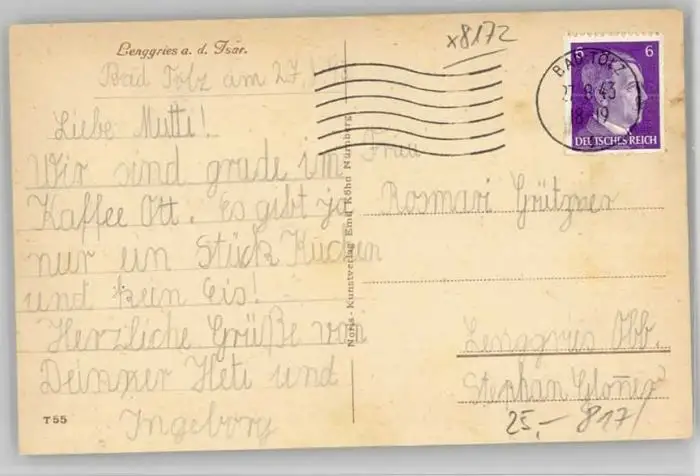 Lenggries a. d. Isar.
x8172
Bad Tölz am 27.
Liebe Mutti!
Wir sind grade im
Kaffee Ott. Es gibt ja
nur ein Stück Kuchen
und kein Eis!
Herzliche Grüße von
Deinxer Heti und
Ingeborg
T 55
Noris-Kunstverlag Emil Köhn Nürnberg
BAD TÖLZ
27.9.43
18-19
6 6
DEUTSCHES REICH
Frau
Rosmari Grützner
Lenggries Obb.
Stephan
25,- 817/